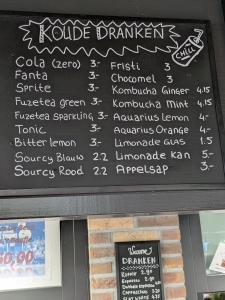 KOUDE DRANKEN
CHILL
Cola (zero) 3.-
Fanta 3.-
Sprite 3.-
Fuzetea green 3.-
Fuzetea sparkling 3.-
Tonic 3.-
Bitter lemon 3.-
Sourcy Blauw 2.2
Sourcy Rood 2.2
Fristi 3
Chocomel 3
Kombucha Ginger 4.15
Kombucha Mint 4.15
Aquarius Lemon 4.-
Aquarius Orange 4.-
Limonade Glas 1.5
Limonade kan 5.-
Appelsap 3.-
Warme
DRANKEN
Koffie 2.90
Espresso 2.90
Cappuccino 3.20